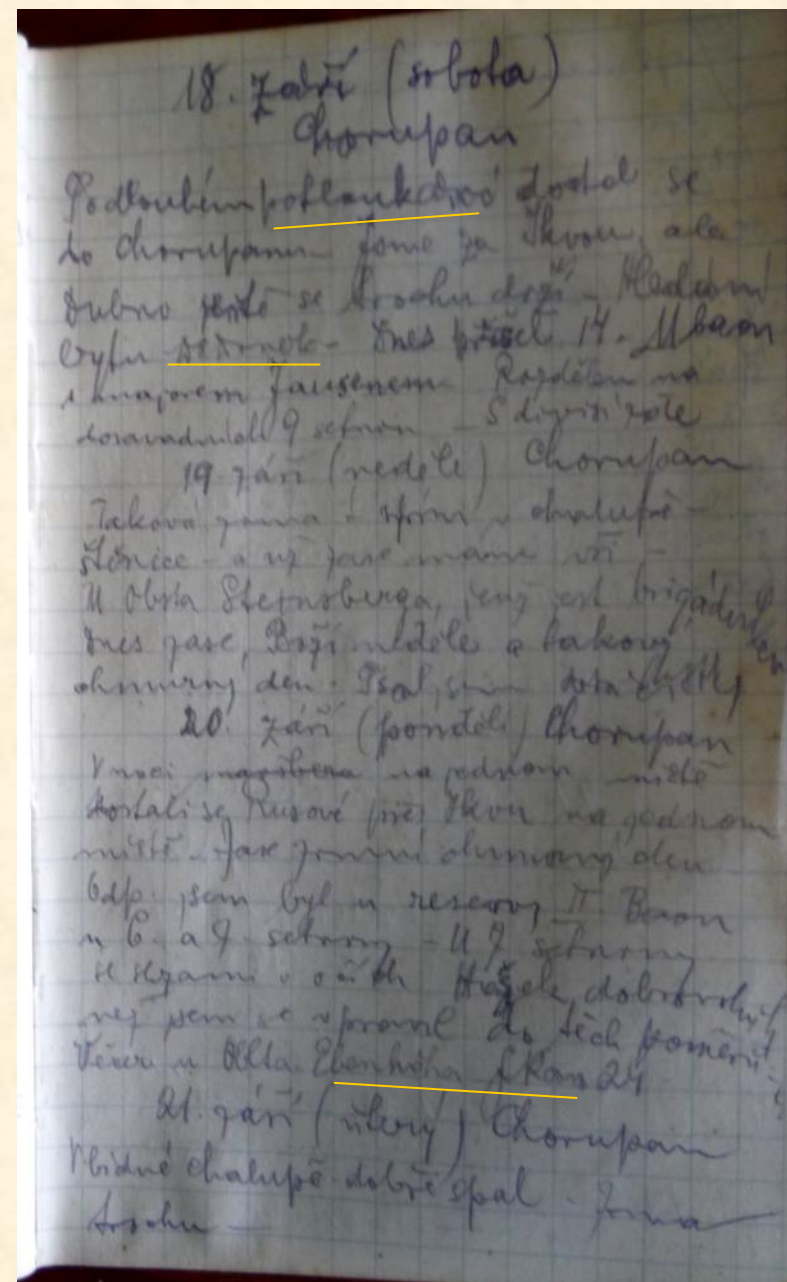 18. září (sobota)
Chorupan
Po dlouhém potloukání dostal se
do Chorupanu. Jsme za Ikvou, ale
Dubno ještě se trochu drží – Hledání
bytu – Dnes přišel 14. Mbaon
s majorem Jansenem. Rozdělen na
dosavadních 9 setnin –
19. září (neděle) Chorupan
Taková zima – spím v chalupě –
štěnice – a už zase mám vši –
U Obsta Sternberga, jenž jest brigádir
Dnes zase Boží neděle a takový
chmurný den. Psal jsem
20. září (pondělí) Chorupan
V noci na jednom místě
dostali se Rusové přes Ikvu na jednom
místě. Zase zimní chmurný den
Odp. jsem byl u reservy II Baon
u 6. a 7. setniny – U 7 setniny
se slzami v očích Hašek, dobrovolník
než jsem se vpravil do těch poměrů –
Večer u 24.
21. září (úterý) Chorupan
V bídné chalupě dobře spal. Zima
trochu –